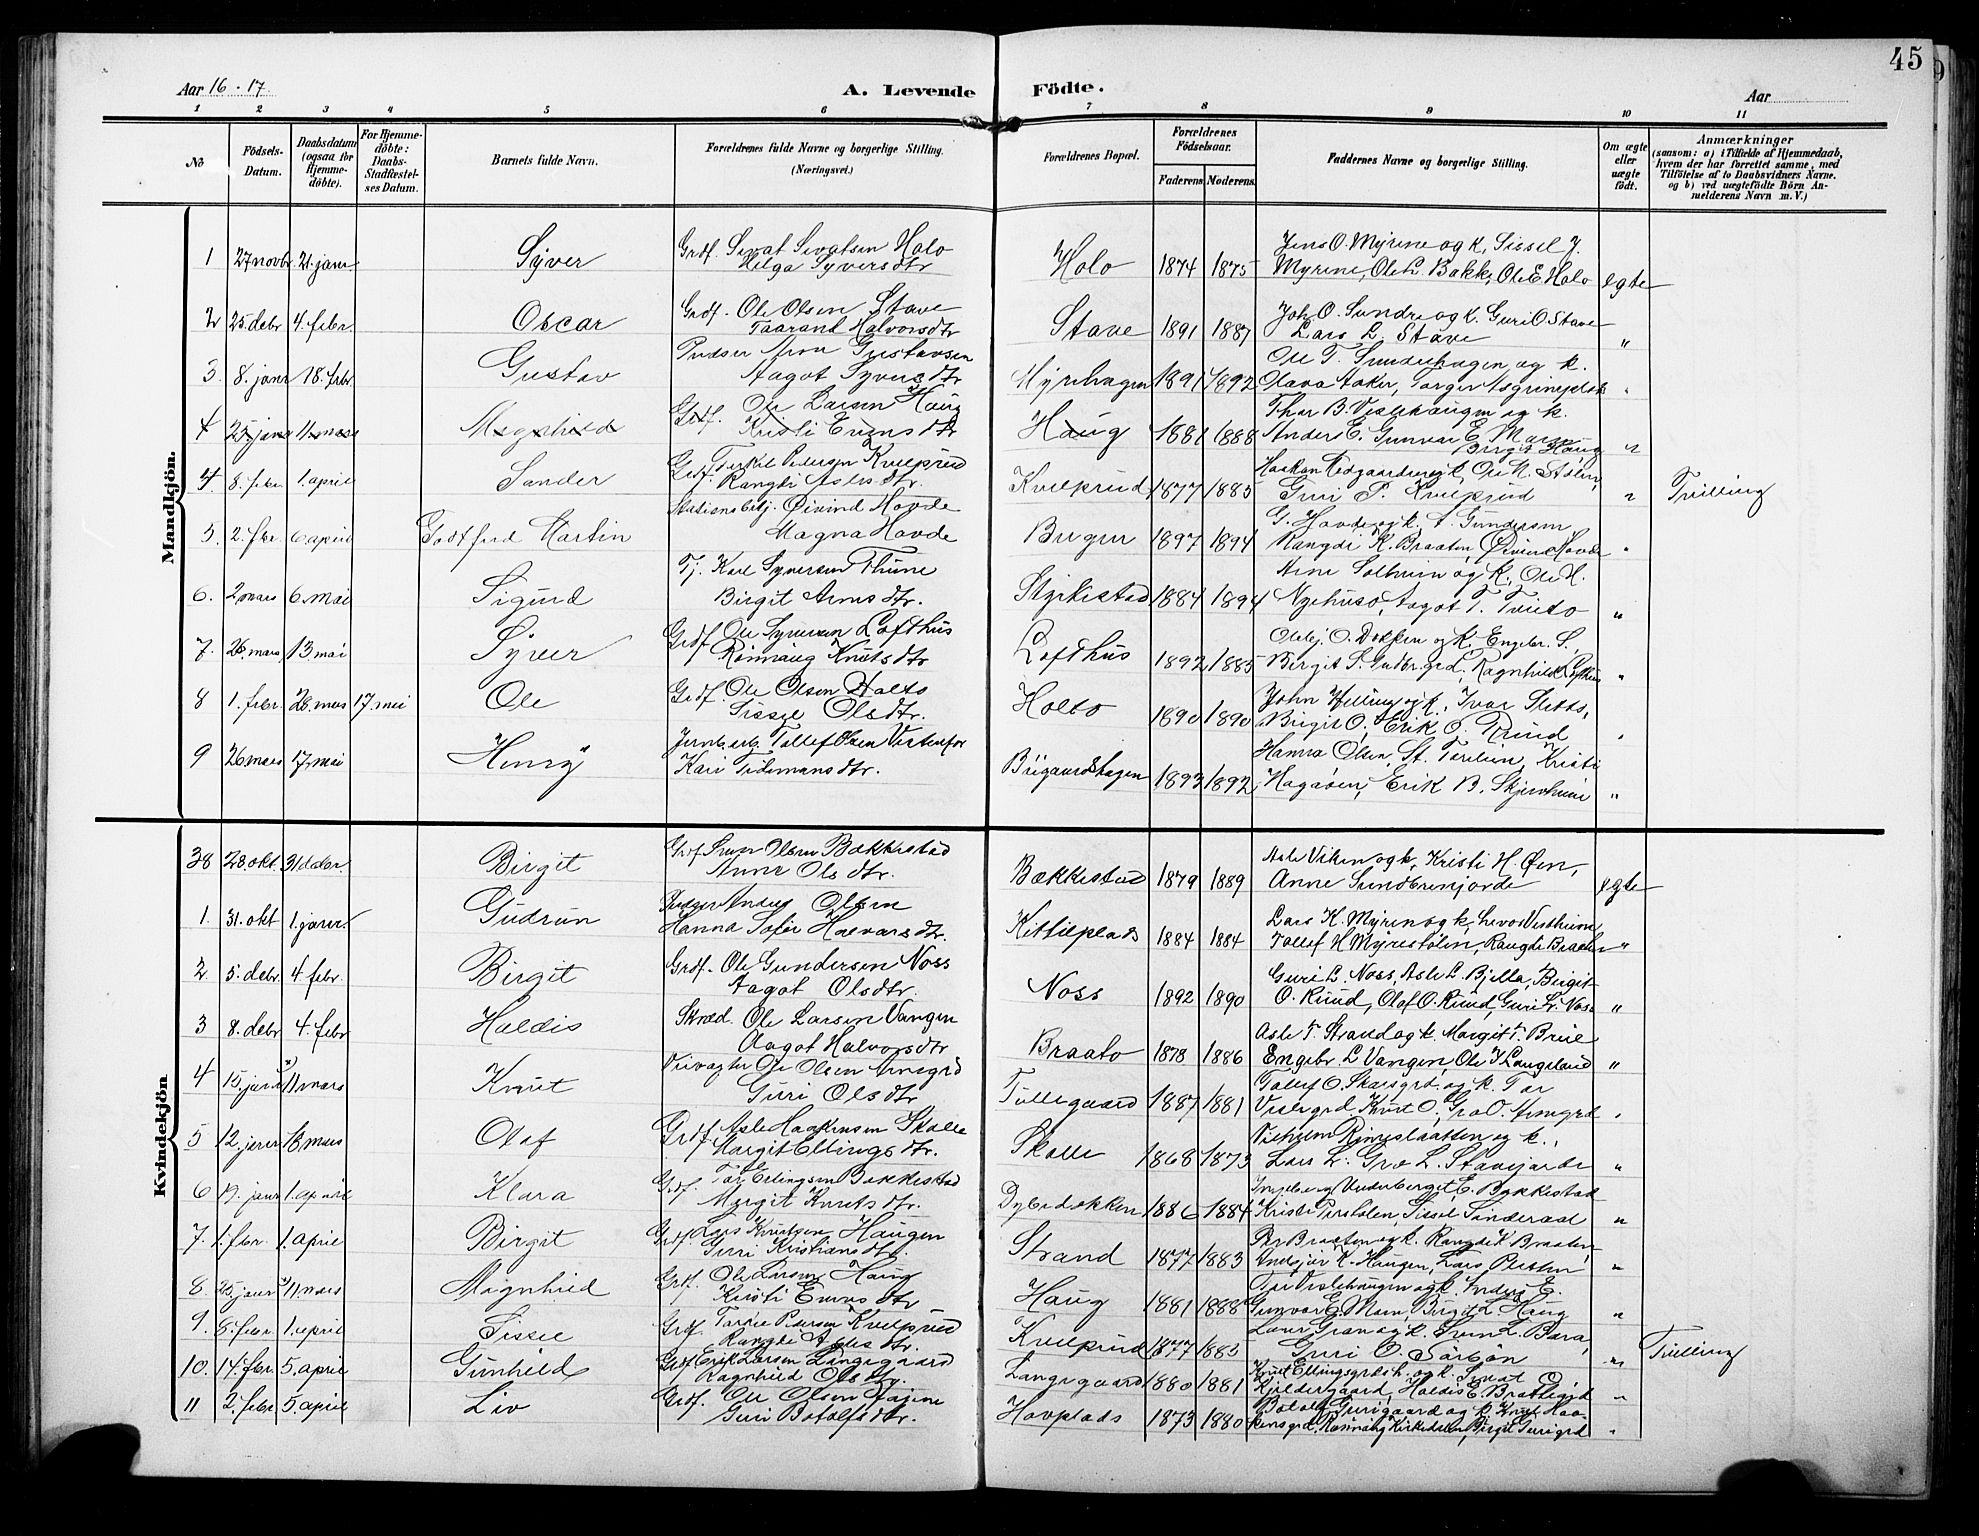 45
Aar 16-17. A. Levende Födte. Aar
1 2 3 4 5 6 7 8 9 10 11
No
Födsels-Datum.
Daabsdatum (ogsaa for Hjemmedöbte).
For Hjemmedöbte: Daabs-Stadfæstelses Datum.
Barnets fulde Navn.
Forældrenes fulde Navne og borgerlige Stilling. (Næringsvei.)
Forældrenes Bopæl.
Forældrenes Födselsaar.
Faderens Moderens.
Faddernes Navne og borgerlige Stilling.
Om ægte eller uægte födt.
Anmærkninger (saasom: a) i Tilfælde af Hjemmedaab, hvem der har forrettet samme, med Tilföielse af to Daabsvidners Navne. og b) ved uægtefödte Börn Anmelderens Navn m. V.)
Mandkjön.
1 27 novbr. 21. janr. Syver Grdf. Sevat Sevatsen Holo Helga Syversdtr Holo 1874 1875 Jens O. Myrene og k, Sissel J. Myrene, Ole L. Bakke, Ole E. Holo egte
2 25. debr 4. febr. Oscar Grdf. Ole Olsen Stave Taarand Halvorsdtr Stave 1891 1887 Joh. O. Sundre og k. Guri O Stave Lars L. Stave "
3. 8. janr 18. febr. Gustav Pudser Arne Gustavsen Aagot Syversdtr Myrehagen 1891 1892 Ole T. Sundrehagen og k. Olava Aaker, Torger "
4 25 janr 11 mars Magnhild Grdf. Ole Larsen Haug Kristi Evensdtr Haug 1881 1888 Thor B. Vislehaugen og k. Anders E. Gunvor E. Moen, Birgit Haug "
4. 8. febr 1. april Sander Grdf Terkel Pedersen Kvelprud Rangdi Aslesdtr. Kvelprud 1877 1885 Haaken og k, Ole N. Stölen, Guri P. Kvelprud " Tvilling
5. 2. febr 6 april Godtfred Martin Stationsbetj. Øivind Hovde Magna Hovde Bregen 1897 1894 G. Hovde og k. A. Gundersen Rangdi K. Braaten, Øivind Hovde "
6. 2 mars 6. mai Sigurd Tj. Karl Syversen Thune Birgit Arnesdtr. Styrkestad 1884 1894 Arne Solheim og k. Ole H. Nyehuso, Aagot T. Tveito "
7. 26. mars 13. mai Syver Grdf Ole Syversen Lofthus Rönnaug Knutsdtr Lofthus 1892 1885 O. Dokken og k, Engebr. S., Birgit S. Ragnhild Lofthus "
8 1. febr. 26. mars 17. mai Ole Grdf. Ole Olsen Holto Sissel Olsdtr. Holto 1890 1890 John Helling og k, Ivar Sletto, Birgit O, Erik O. Ruud "
9 26 mars 17. mai Henry Jernb. arb. Tollef Olsen Kari Tidemansdtr. Bygaardshagen 1893 1892 Hanna Olsen, St. Torleiv, Kristi Hagaasen, Erik B. Skjervheim "
Kvindekjön
38 28. okt. 31 debr. Birgit Grdf Sven Olsen Bækkestad Anne Olsdtr. Bækkestad 1879 1889 Asle Viken og k, Kristi H. Øen, Anne Sundbrenjorde egte
1. 31. okt 1. janr. Gudrun Pudser Anders Olsen Hanna Sofie Halvorsdtr. Kittilplads 1884 1884 Lars K. Myren og k, Tollef H Myrestölen, Rangdi Braaten "
2 5. debr 4 febr. Birgit Grdf. Ole Gundersen Noss Aagot Olsdtr. Noss 1892 1890 Guri L. Noss, Asle L. Bjella, Birgit O. Ruud, Olaf O. Ruud, Guri L. Noss "
3 8. debr 4. febr Haldis Skræd. Ole Larsen Vangen Aagot Halvorsdtr Braato 1878 1886 Asle T Strand og k. Margit T. Brue Engebr. L. Vangen, Ole K Langeland "
4 15. janr x) 11 mars Knut Veivogter Ole Olsen Guri Olsdtr Tollesgaard 1887 1881 Tollef O. Skaksgrd. og k. Tor Vislegrd Knut O, Gro O. "
5 12. janr 18 mars Olaf Grdf Asle Haakensen Skolle Margit Ellingsdtr. Skolle 1868 1873 Vilhelm og k., Lars L. Gro L. "
6 19. janr 1. april Klara Grdf. Tor Erlingsen Bekkestad Margit Knutsdtr. Dybedokken 1886 1884 Ingeb. og Underbergit E. Bækkestad Kristi Sissel "
7. 1. febr. 1. april Birgit Grdf. Lars Knutsen Haugen Guri Kristiansdtr. Strand 1877 1883 Per Braaten og k. Rangdi K Braaten, K. Haugen, Lars "
8 25 janr x) 11. mars Magnhild Grdf. Ole Larsen Haug Kristi Evensdtr Haug 1881 1888 Tor Vislehaugen og k. Anders E. Gunvor E. Moen, Birgit L. Haug "
9. 8. febr. 1. april Sissel Grdf. Torkel Pedersen Kvelprud Rangdi Aslesdtr Kvelprud 1877 1885 og k. Sven L. Bara, Guri O. " Tvilling
10. 14. febr. 5. april Gunhild Grdf Erik Larsen Langegaard Ragnhild Olsdtr. Langegaard 1880 1881 Knut Ellingsgrdsh. og k. Sevat O, Kjeldergaard, Haldis E. Brattegrd "
11 2. febr 5. april Liv Grdf. Ole Olsen Guri Botolfsdtr. Hovplads 1873 1880 Botolf Gurigaard og k. Knut Haakensgrd, Rönnaug Birgit Gurigrd "